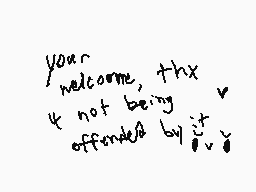 your
welcome, thx
4 not being
offended by it